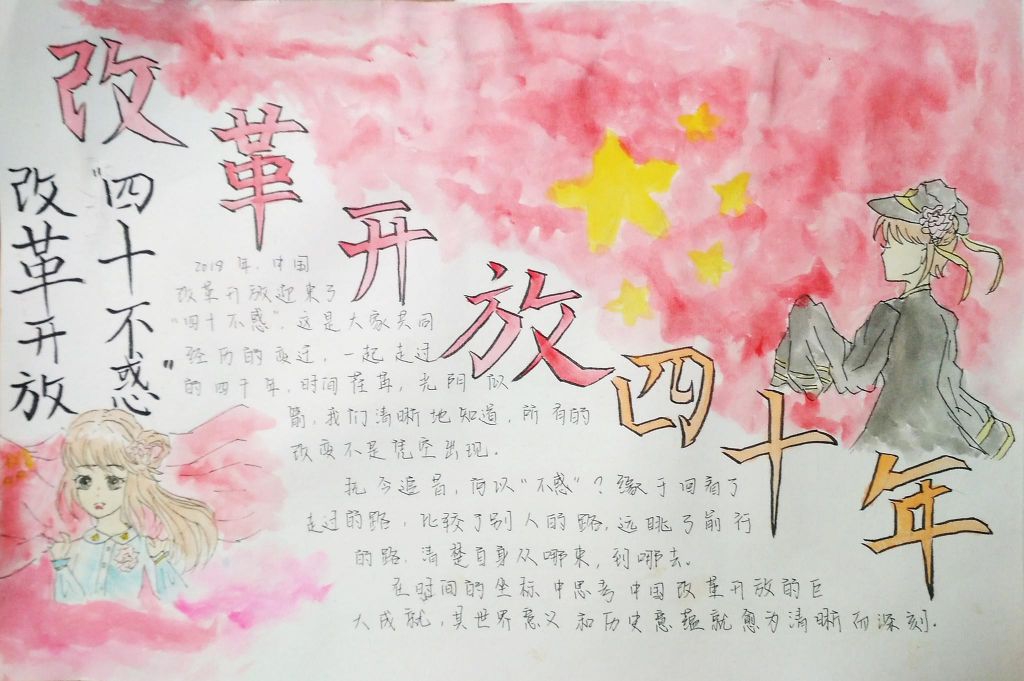 改革开放四十年
"四十不惑"
改革开放
2018年,中国
改革开放迎来了
"四十不惑",这是大家共同
经历的变迁,一起走过
的四十年,时间荏苒,光阴似
箭,我们清晰地知道,所有的
改变不是凭空出现.
抚今追昔,何以"不惑"?缘于回看了
走过的路,比较了别人的路,远眺了前行
的路.清楚自身从哪来,到哪去.
在时间的坐标中思考中国改革开放的巨
大成就,其世界意义和历史意蕴就愈为清晰而深刻.